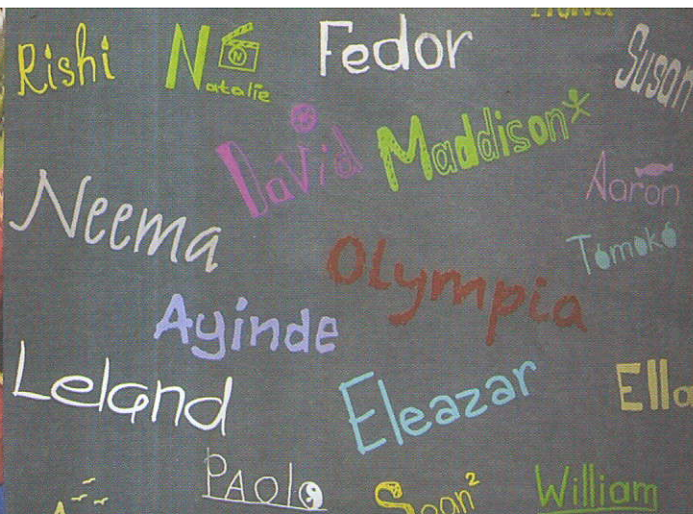 Rishi
Natalie
N
Fedor
Susan
David
Maddison
Aaron
Neema
Tomoko
Olympia
Ayinde
Leland
Eleazar
Ella
Paolo
Sean²
William